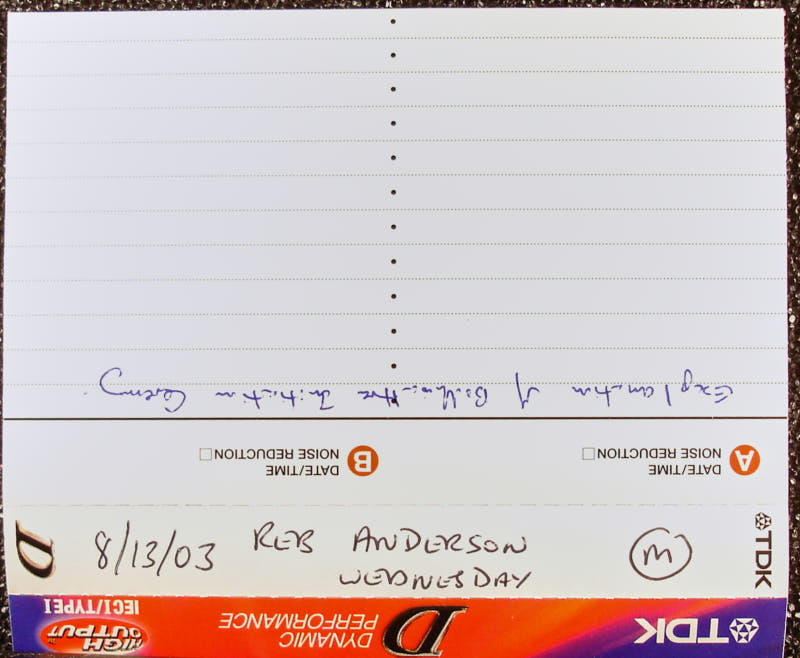 Explanation of Bodhisattva Initiation Ceremony
A DATE/TIME
NOISE REDUCTION
B DATE/TIME
NOISE REDUCTION
8/13/03 REB ANDERSON
WEDNESDAY
M
TDK
D
TDK
D DYNAMIC
PERFORMANCE
HIGH
OUTPUT
IECI/TYPE I